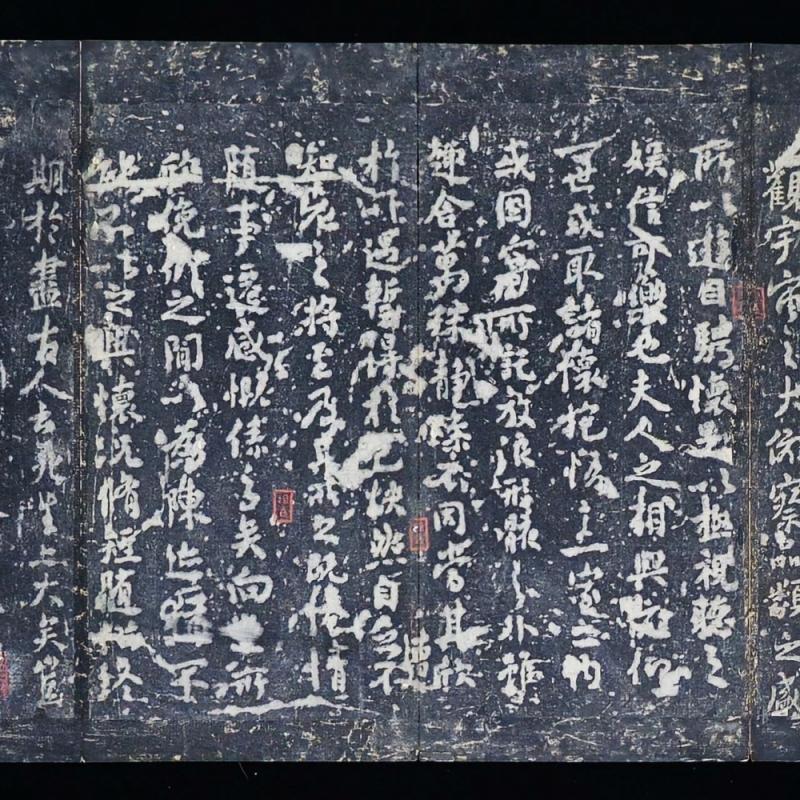 觀宇宙之大俯察品類之盛
所以遊目騁懷足以極視聽之
娛信可樂也夫人之相與俯仰
一世或取諸懷抱悟言一室之內
或因寄所託放浪形骸之外雖
趣舍萬殊靜躁不同當其欣
僧
於所遇暫得於己快然自足不
知老之將至及其所之既惓情
隨事遷感慨係之矣向之所
欣俛仰之間以為陳迹猶不
能不以之興懷況脩短隨化終
期於盡古人云死生亦大矣豈